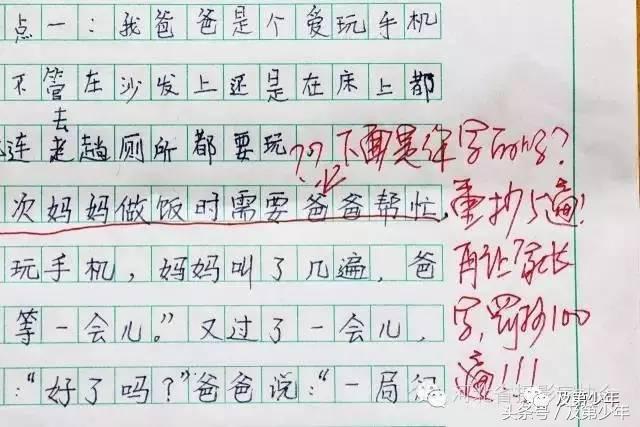 点一：我爸爸是个爱玩手机
不管在沙发上还是在床上都
去
连趟厕所都要玩
??下面字的吗?
次妈妈做饭时需要爸爸帮忙，
重抄5遍!
玩手机，妈妈叫了几遍，爸
再让家长
等一会儿。”又过了一会儿，
字，罚抄100
：“好了吗？”爸爸说：“一局
遍!!!
及第少年
头条号 / 及第少年